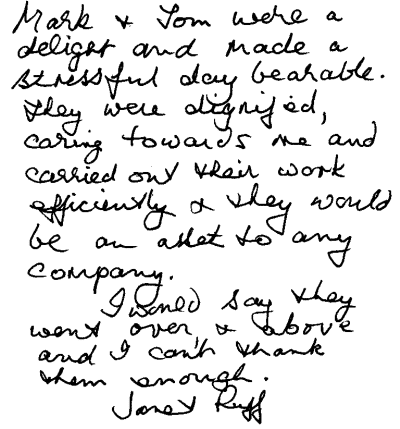 Mark & Tom were a
delight and made a
stressful day bearable.
They were dignified,
caring towards me and
carried out their work
efficiently & they would
be an asset to any
company.
I would say they
went over & above
and I can't thank
them enough.
Janet Ruff